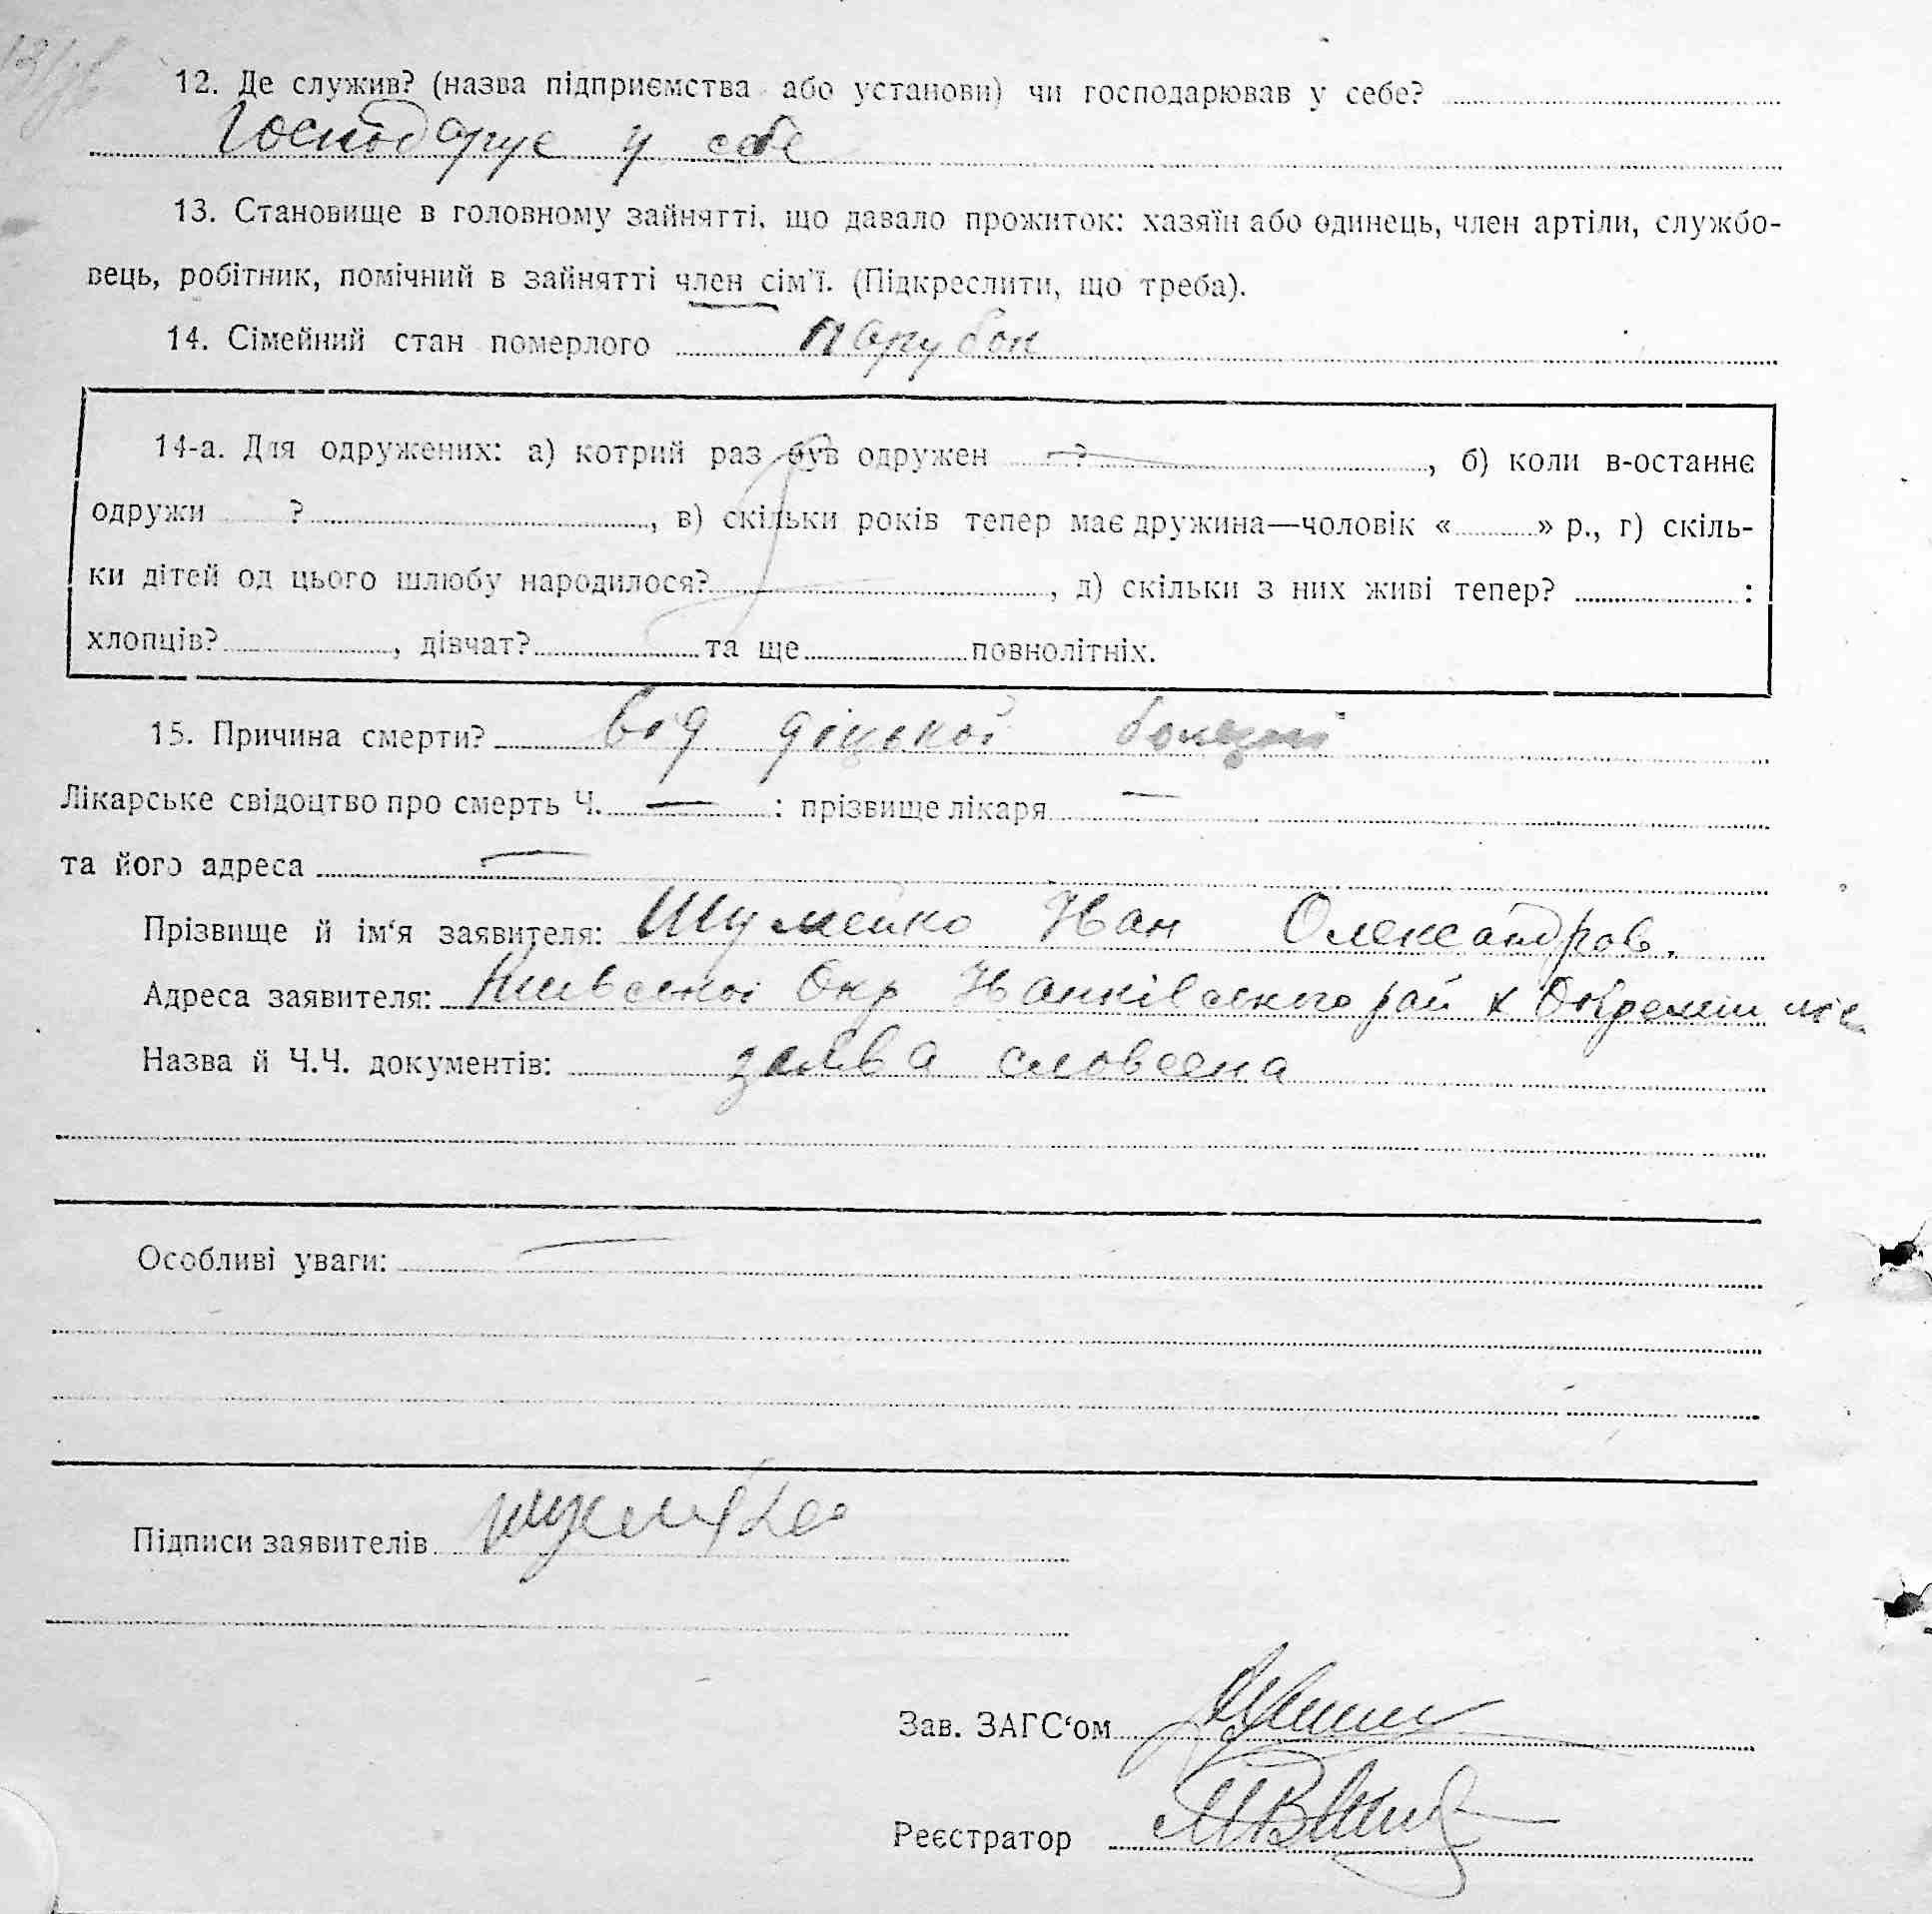 12. Де служив? (назва підприємства або установи) чи господарював у себе?
Господарує у себе
13. Становище в головному зайнятті, що давало прожиток: хазяїн або одинець, член артіли, службо-
вець, робітник, помічний в зайнятті член сім'ї. (Підкреслити, що треба).
14. Сімейний стан померлого парубок
14-а. Для одружених: а) котрий раз був одружен ?, б) коли в-останнє
одружи ?, в) скільки років тепер має дружина—чоловік « » р., г) скіль-
ки дітей од цього шлюбу народилося?, д) скільки з них живі тепер? :
хлопців?, дівчат? та ще повнолітніх.
15. Причина смерти? від діцької болезні
Лікарське свідоцтво про смерть Ч. — : прізвище лікаря —
та його адреса —
Прізвище й ім'я заявителя: Шумейко Іван Олександров.
Адреса заявителя: Київської Окр Іванківського рай х
Назва й Ч.Ч. документів: заява словесна
Особливі уваги: —
Підписи заявителів Шумейко
Зав. ЗАГС'ом
Реєстратор